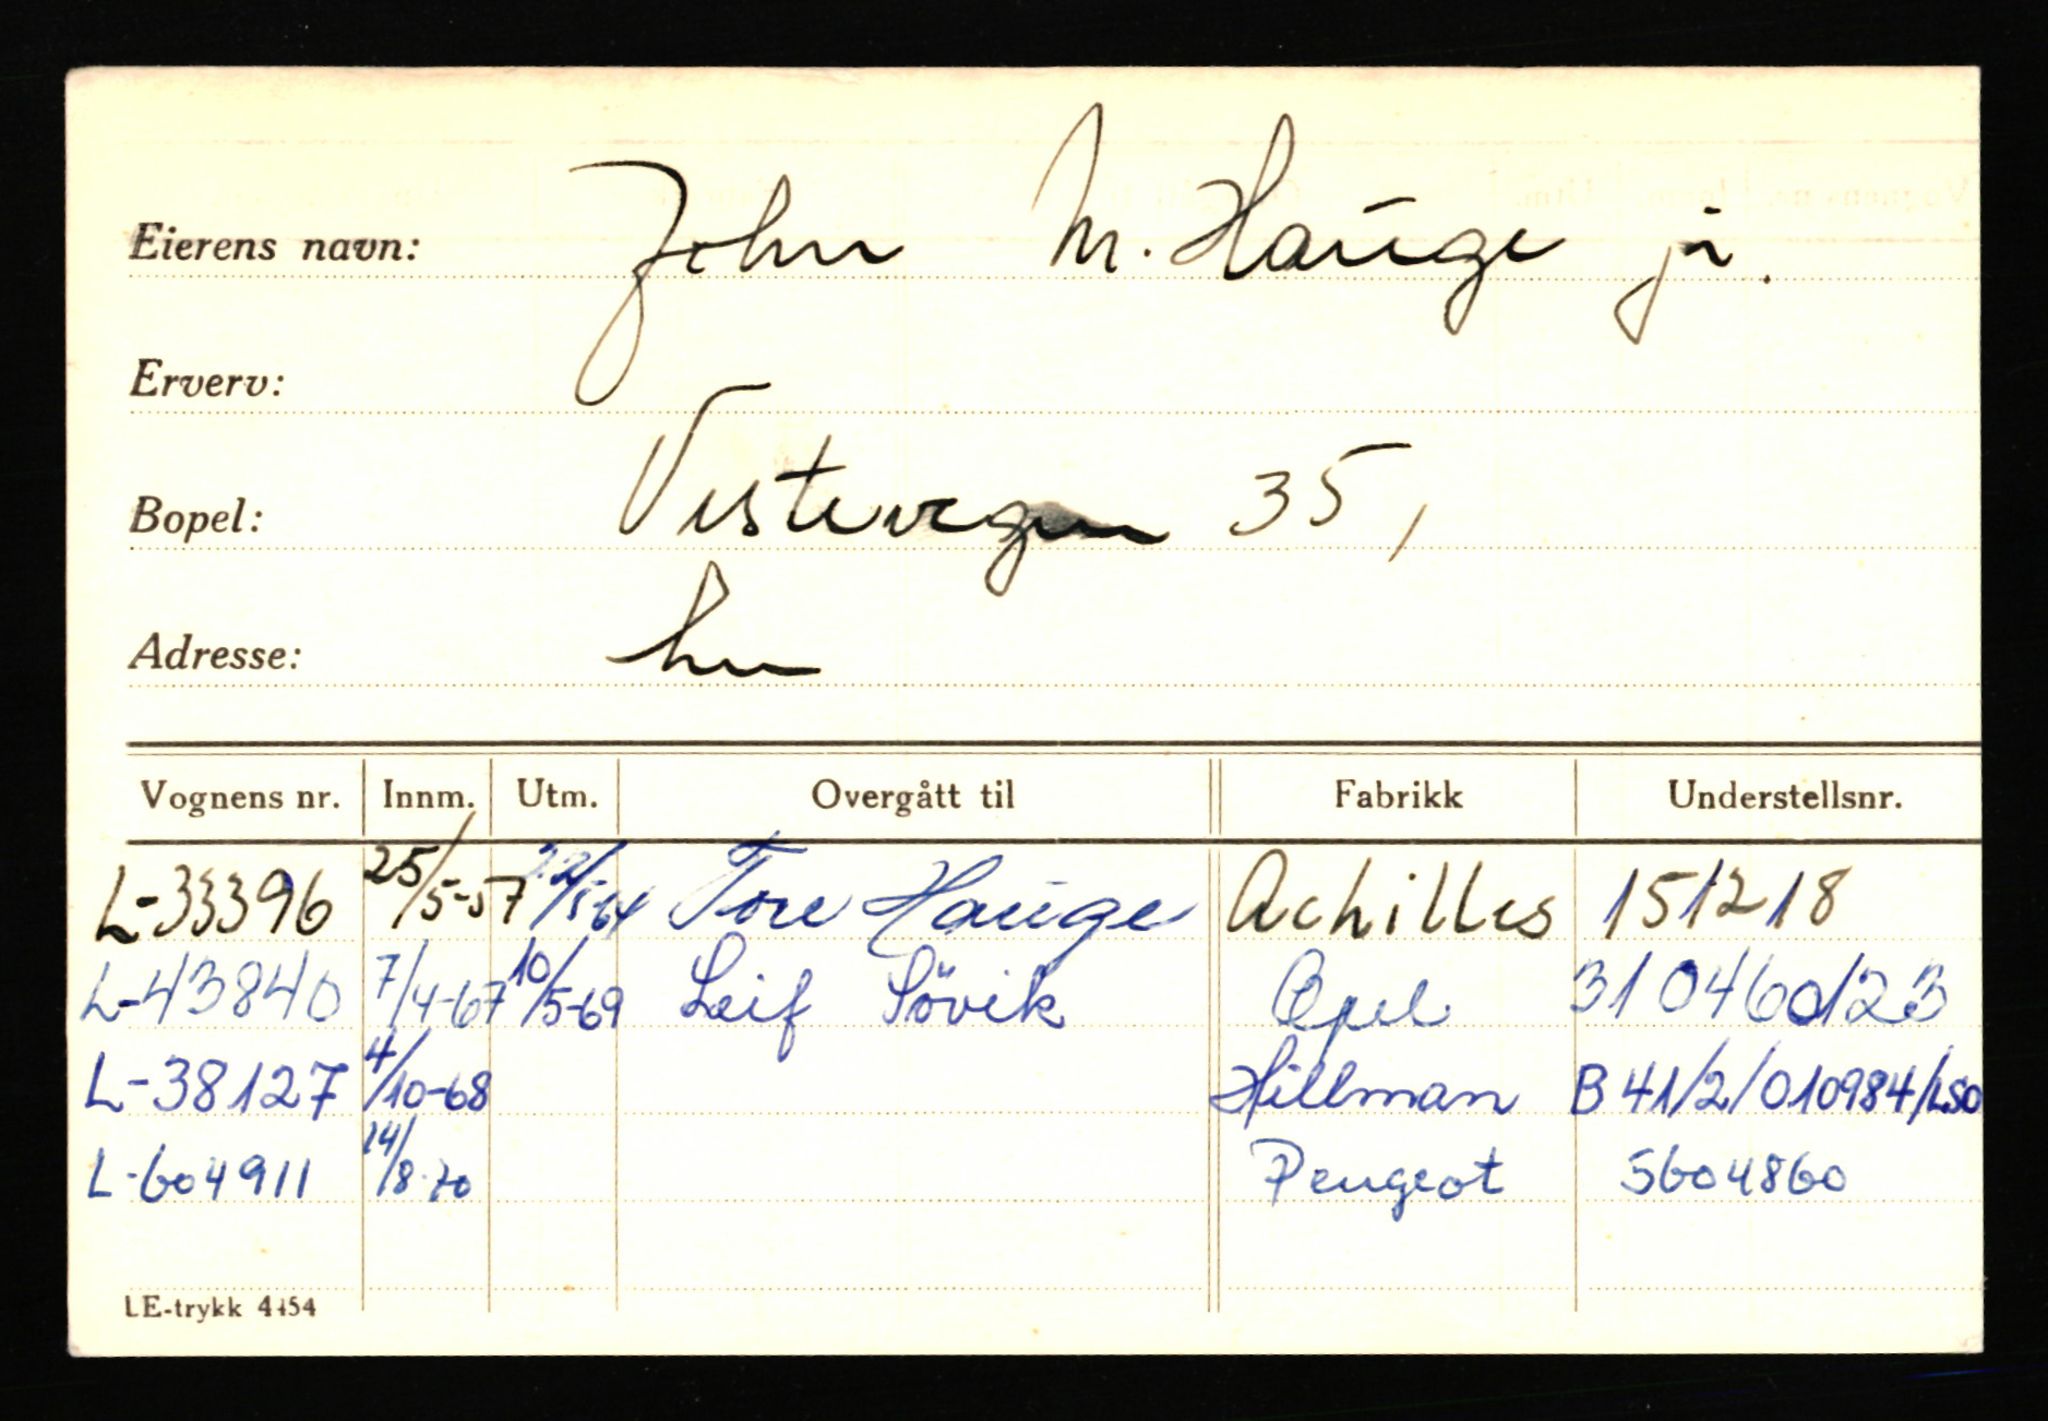 Eierens navn: John M. Hauge jr.
Erverv:
Bopel: Vestevegen 35,
Adresse: her
Vognens nr. Innm. Utm. Overgått til Fabrikk Understellsnr.
L-33396 25/5-57 22/5-64 Tore Hauge Achilles 151218
L-43840 7/4-67 10/5-69 Leif Sövik Opel 310460123
L-38127 4/10-68 Hillman B41/2/010984/LSO
L-604911 14/8-70 Peugeot 5604860
LE-trykk 4454